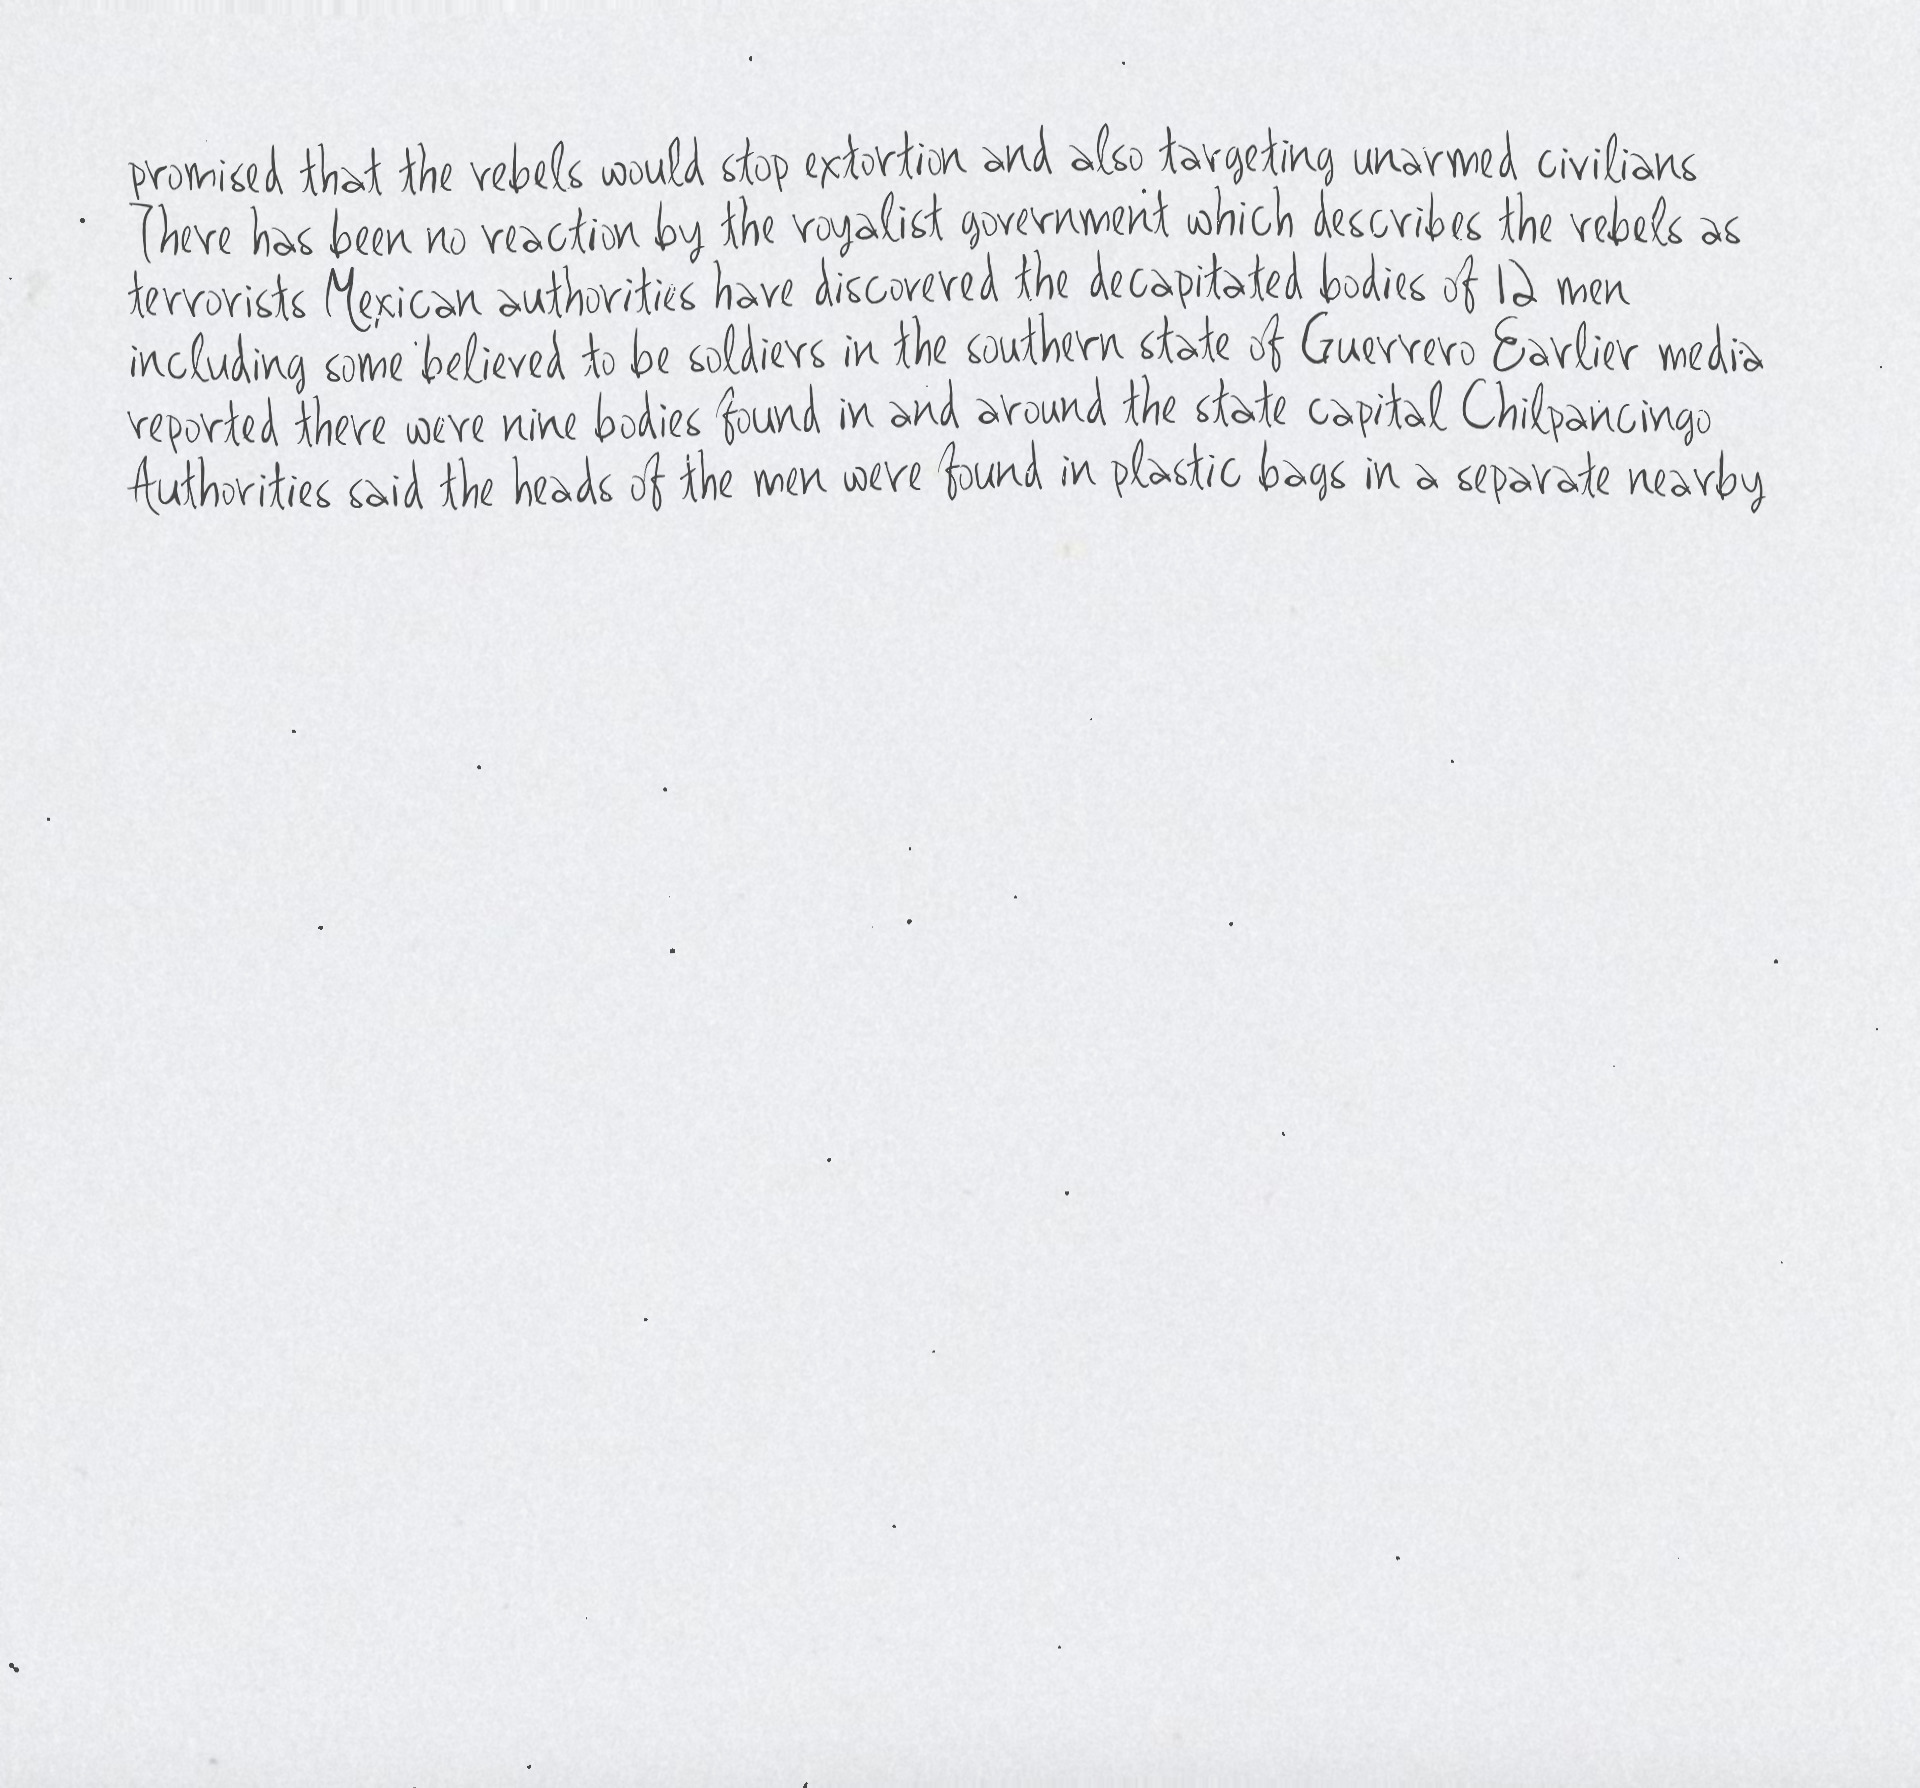 promised that the rebels would stop extortion and also targeting unarmed civilians
There has been no reaction by the royalist government which describes the rebels as
terrorists Mexican authorities have discovered the decapitated bodies of 12 men
including some believed to be soldiers in the southern state of Guerrero Earlier media
reported there were nine bodies found in and around the state capital Chilpancingo
Authorities said the heads of the men were found in plastic bags in a separate nearby